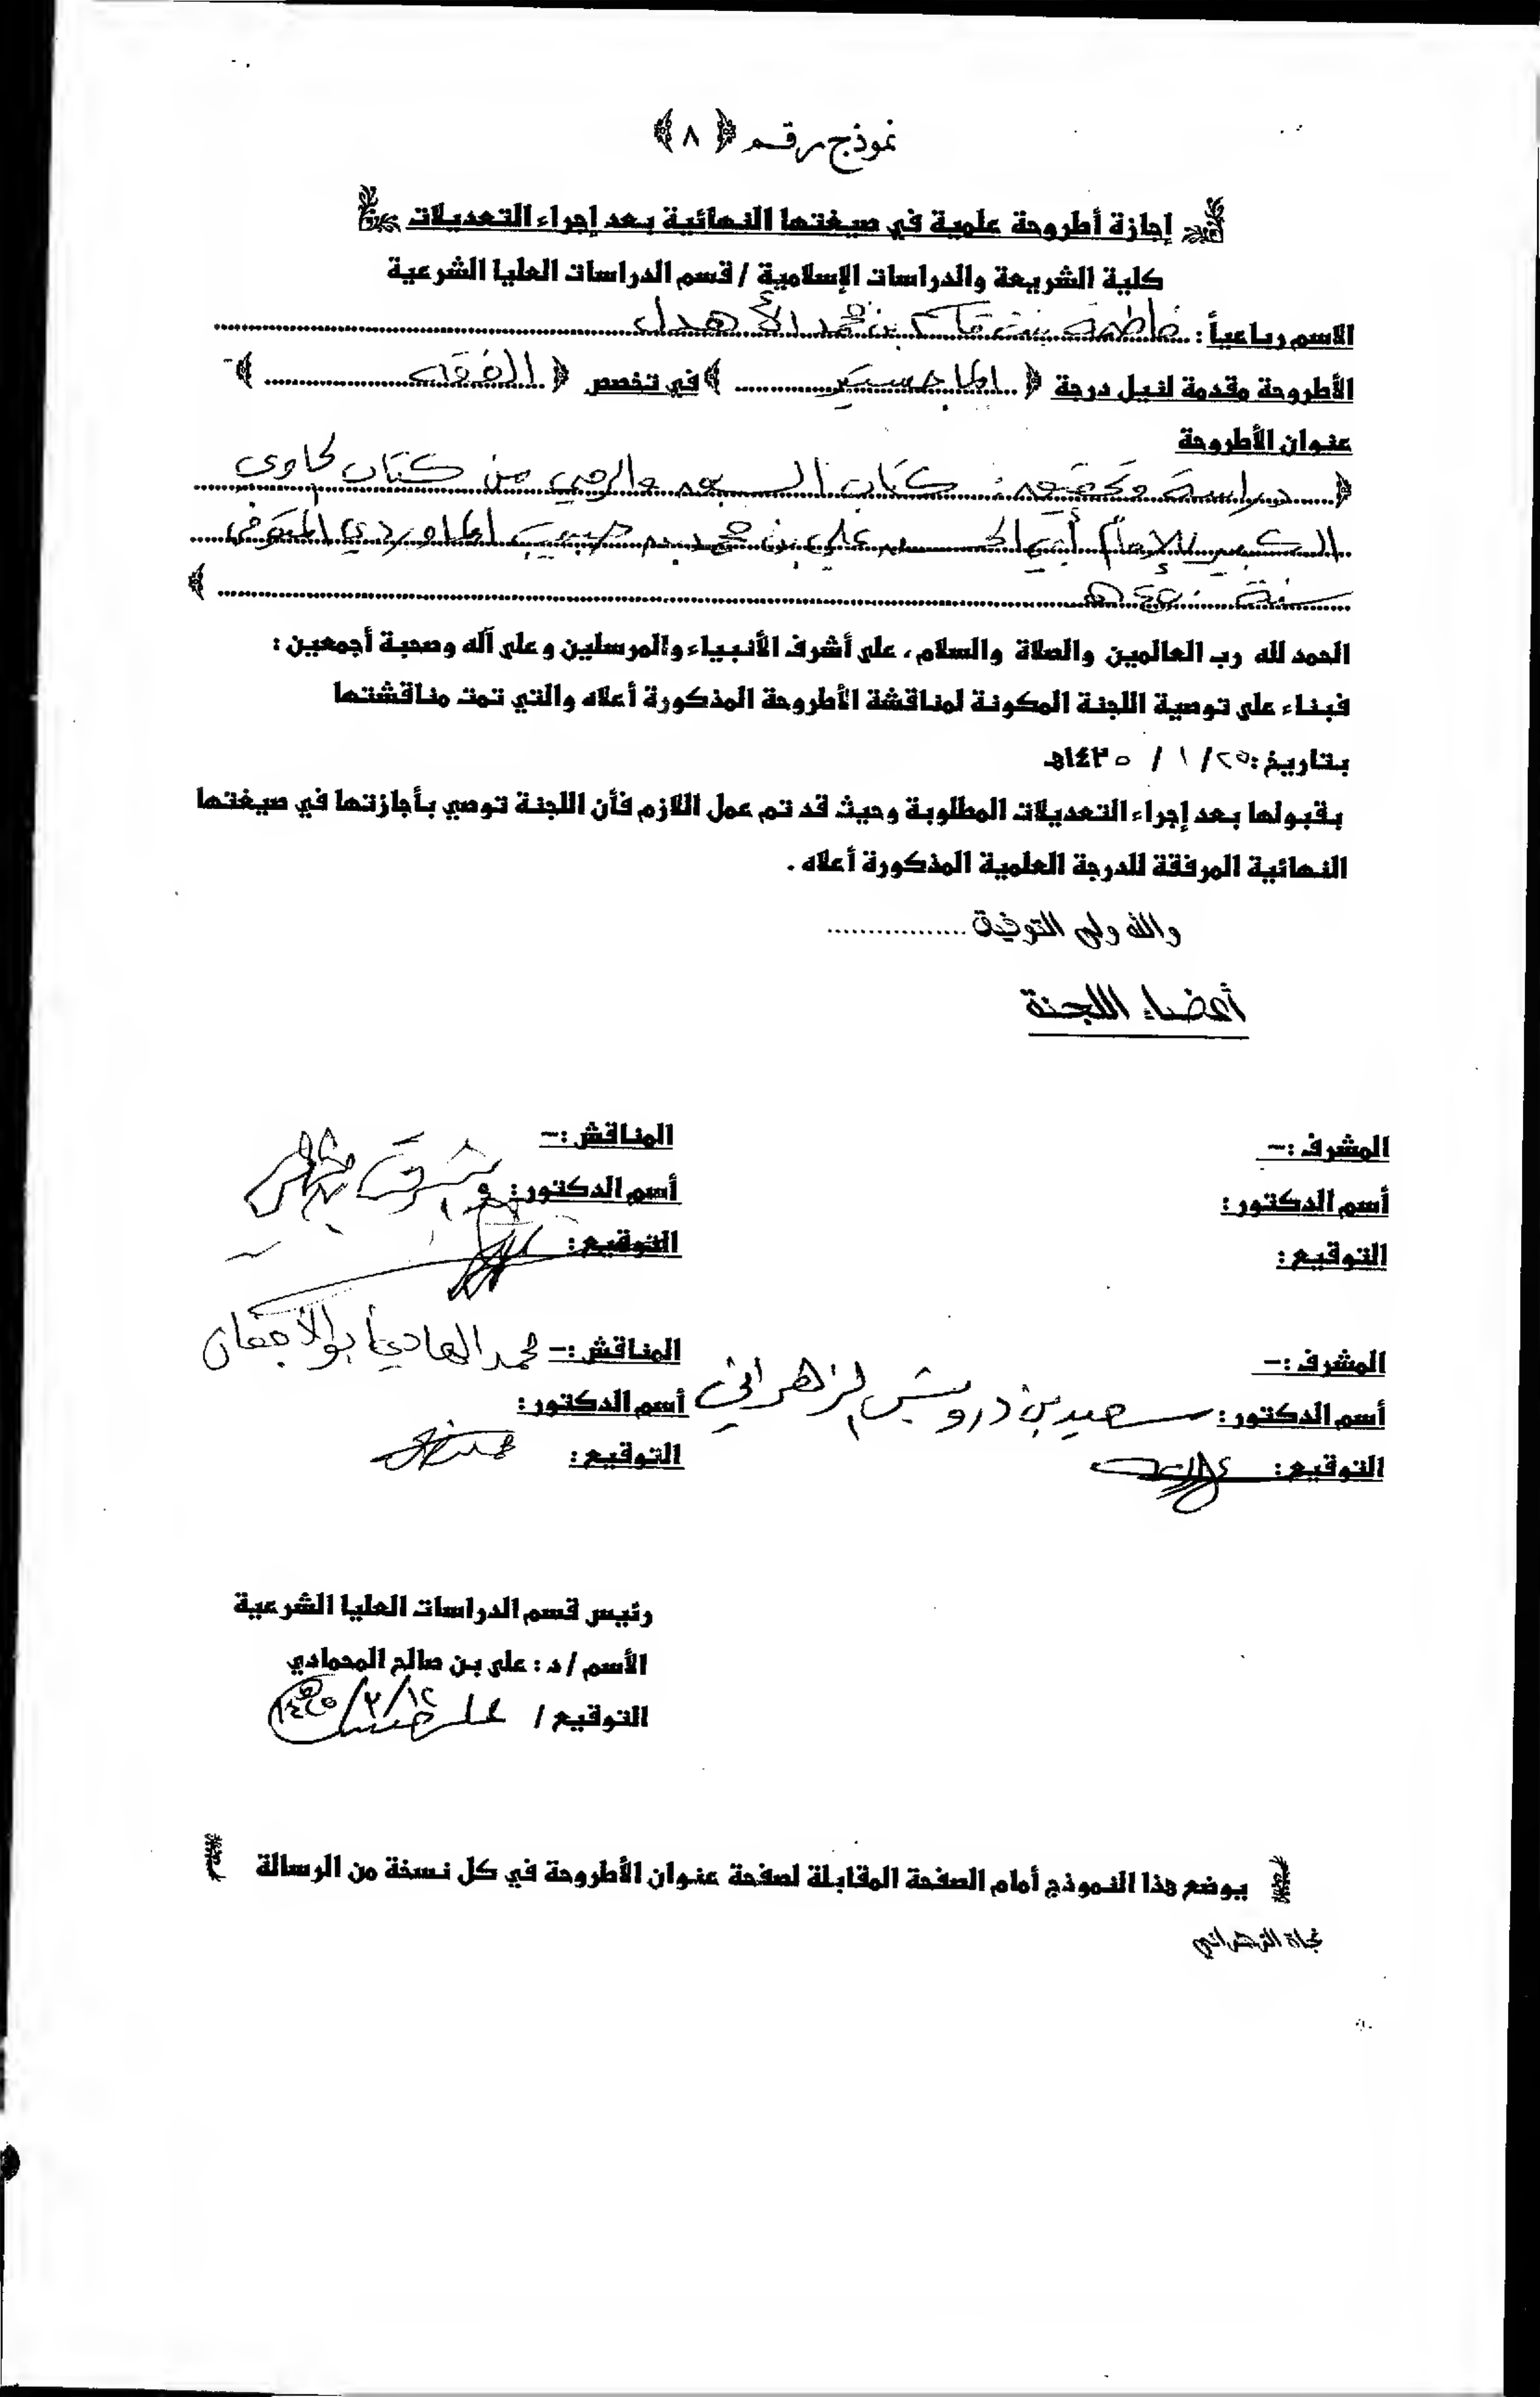 نموذج رقم ﴿ ٨ ﴾
إجازة أطروحة علمية في صيغتها النهائية بعد إجراء التعديلات
كلية الشريعة والدراسات الإسلامية / قسم الدراسات العليا الشرعية
الاسم رباعياً : فاطمة بنت قاسم بن محمد الأهدل
الأطروحة مقدمة لنيل درجة ﴿ الماجستير ﴾ في تخصص ﴿ الفقه ﴾
عنوان الأطروحة
﴿ دراسة وتحقيق : كتاب السبق والرمي من كتاب الحاوي
الكبير للإمام أبي الحسن علي بن محمد بن حبيب الماوردي المتوفى
سنة ٤٥٠ هـ ﴾
الحمد لله رب العالمين والصلاة والسلام ، على أشرف الأنبياء والمرسلين وعلى آله وصحبة أجمعين :
فبناء على توصية اللجنة المكونة لمناقشة الأطروحة المذكورة أعلاه والتي تمت مناقشتها
بتاريخ : ٢٥ / ١ / ١٤٢٥هـ
بقبولها بعد إجراء التعديلات المطلوبة وحيث قد تم عمل اللازم فأن اللجنة توصي بأجازتها في صيغتها
النهائية المرفقة للدرجة العلمية المذكورة أعلاه .
والله ولي التوفيق .................
أعضاء اللجنة
المشرف :–
أسم الدكتور :
التوقيع :
المناقش :–
أسم الدكتور :
التوقيع :
المشرف :–
أسم الدكتور : سعيد بن درويش الزهراني
التوقيع :
المناقش :– محمد الهادي أبو الأجفان
أسم الدكتور :
التوقيع :
رئيس قسم الدراسات العليا الشرعية
الأسم / د : علي بن صالح المحمادي
التوقيع /
يوضع هذا النموذج أمام الصفحة المقابلة لصفحة عنوان الأطروحة في كل نسخة من الرسالة
نجاة الزهراني